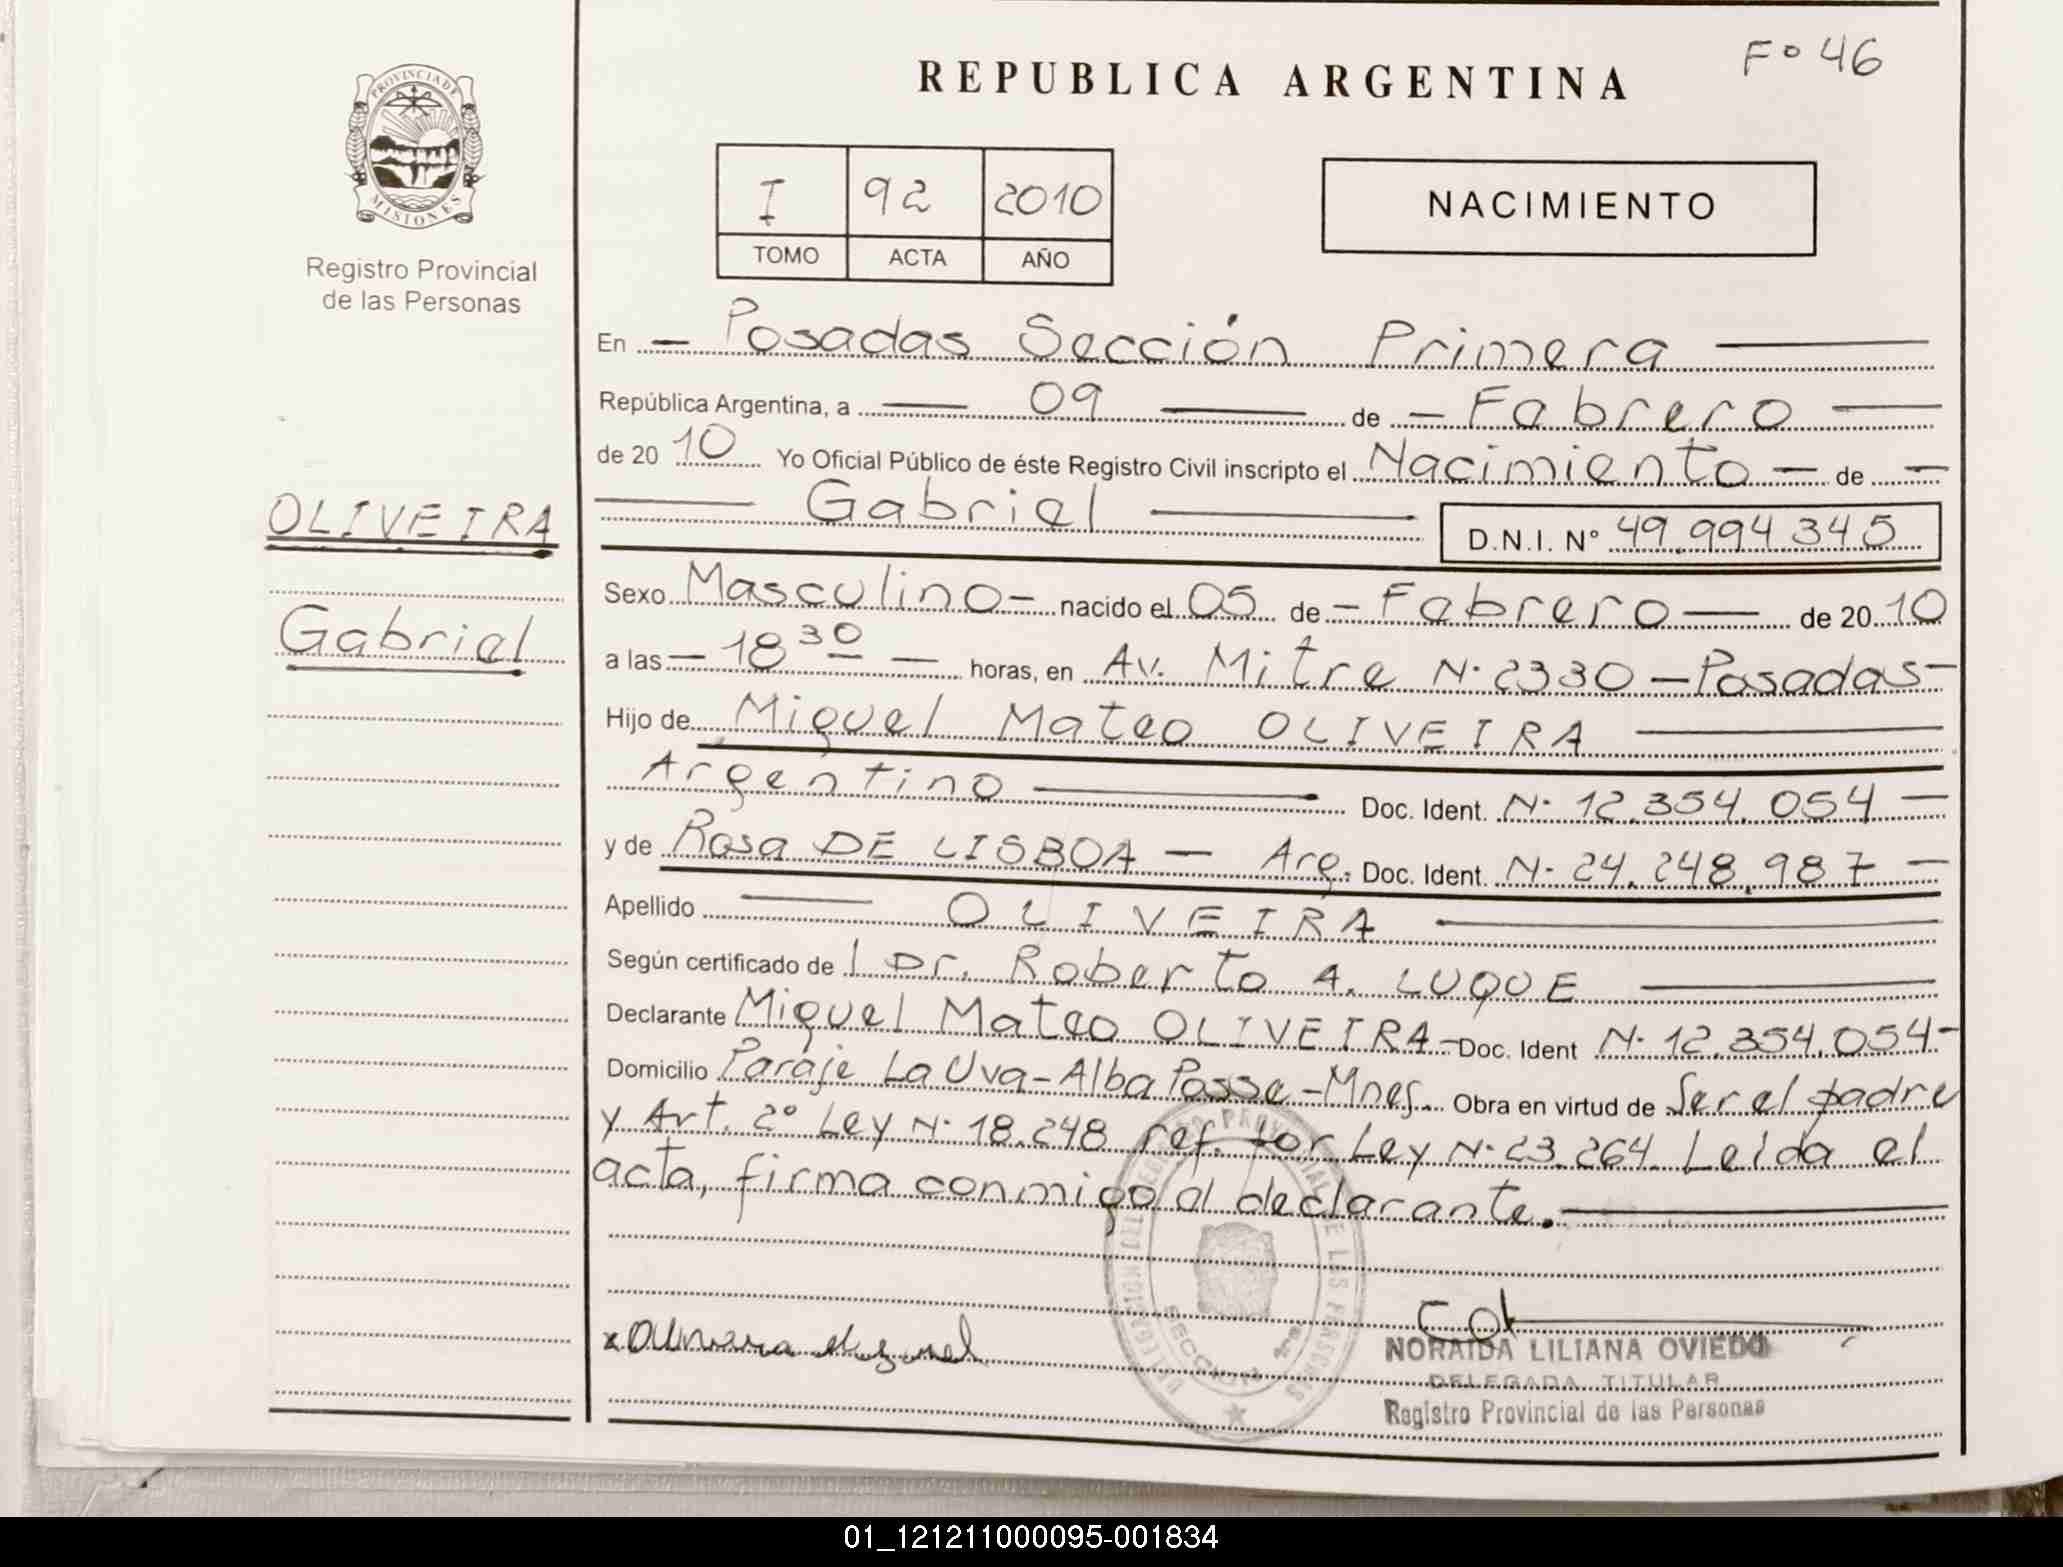 F° 46
REPUBLICA ARGENTINA
PROVINCIA DE
MISIONES
Registro Provincial
de las Personas
I 92 2010
TOMO ACTA AÑO
NACIMIENTO
En — Posadas Sección Primera —
República Argentina, a — 09 — de — Febrero —
de 20 10 Yo Oficial Público de éste Registro Civil inscripto el Nacimiento — de —
— Gabriel — D.N.I. N° 49.994.345
OLIVEIRA
Gabriel
Sexo Masculino — nacido el 05 de — Febrero — de 20 10
a las — 18 30 — horas, en Av. Mitre N· 2330 — Posadas —
Hijo de Miguel Mateo OLIVEIRA —
Argentino — Doc. Ident. N· 12.354.054 —
y de Rosa DE LISBOA — Arg. Doc. Ident. N· 24.248.987 —
Apellido — OLIVEIRA —
Según certificado de l Dr. Roberto A. LUQUE —
Declarante Miguel Mateo OLIVEIRA — Doc. Ident N· 12.354.054 —
Domicilio Paraje La Uva - Alba Posse - Mnes. Obra en virtud de Ser el padre
y Art. 2° Ley N· 18.248 ref. por Ley N· 23.264. Leida el
acta, firma conmigo el declarante. —
x Oliveira Miguel
NORAIDA LILIANA OVIEDO
DELEGADA TITULAR
Registro Provincial de las Personas
REGISTRO PROVINCIAL DE LAS PERSONAS
SECCION 1ra.
01_121211000095-001834